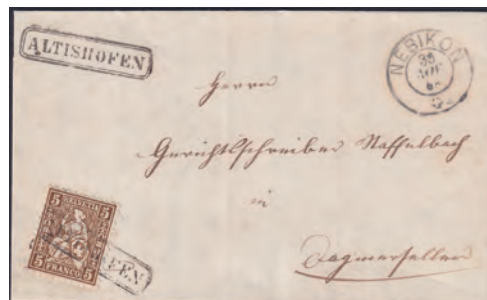 ALTISHOFEN
NEBIKON
30
NOV
68
Herrn
Gerichtschreiber Staffelbach
in
Dagmersellen
5 HELVETIA 5
5 FRANCO 5
FEN